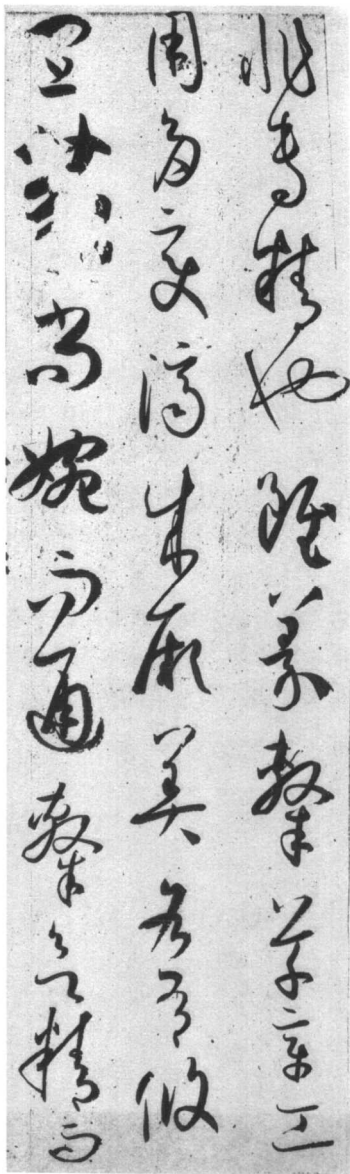 非專精也雖篆隸草章工
用多變濟成厥美各有攸
宜篆尚婉而通隸欲精而